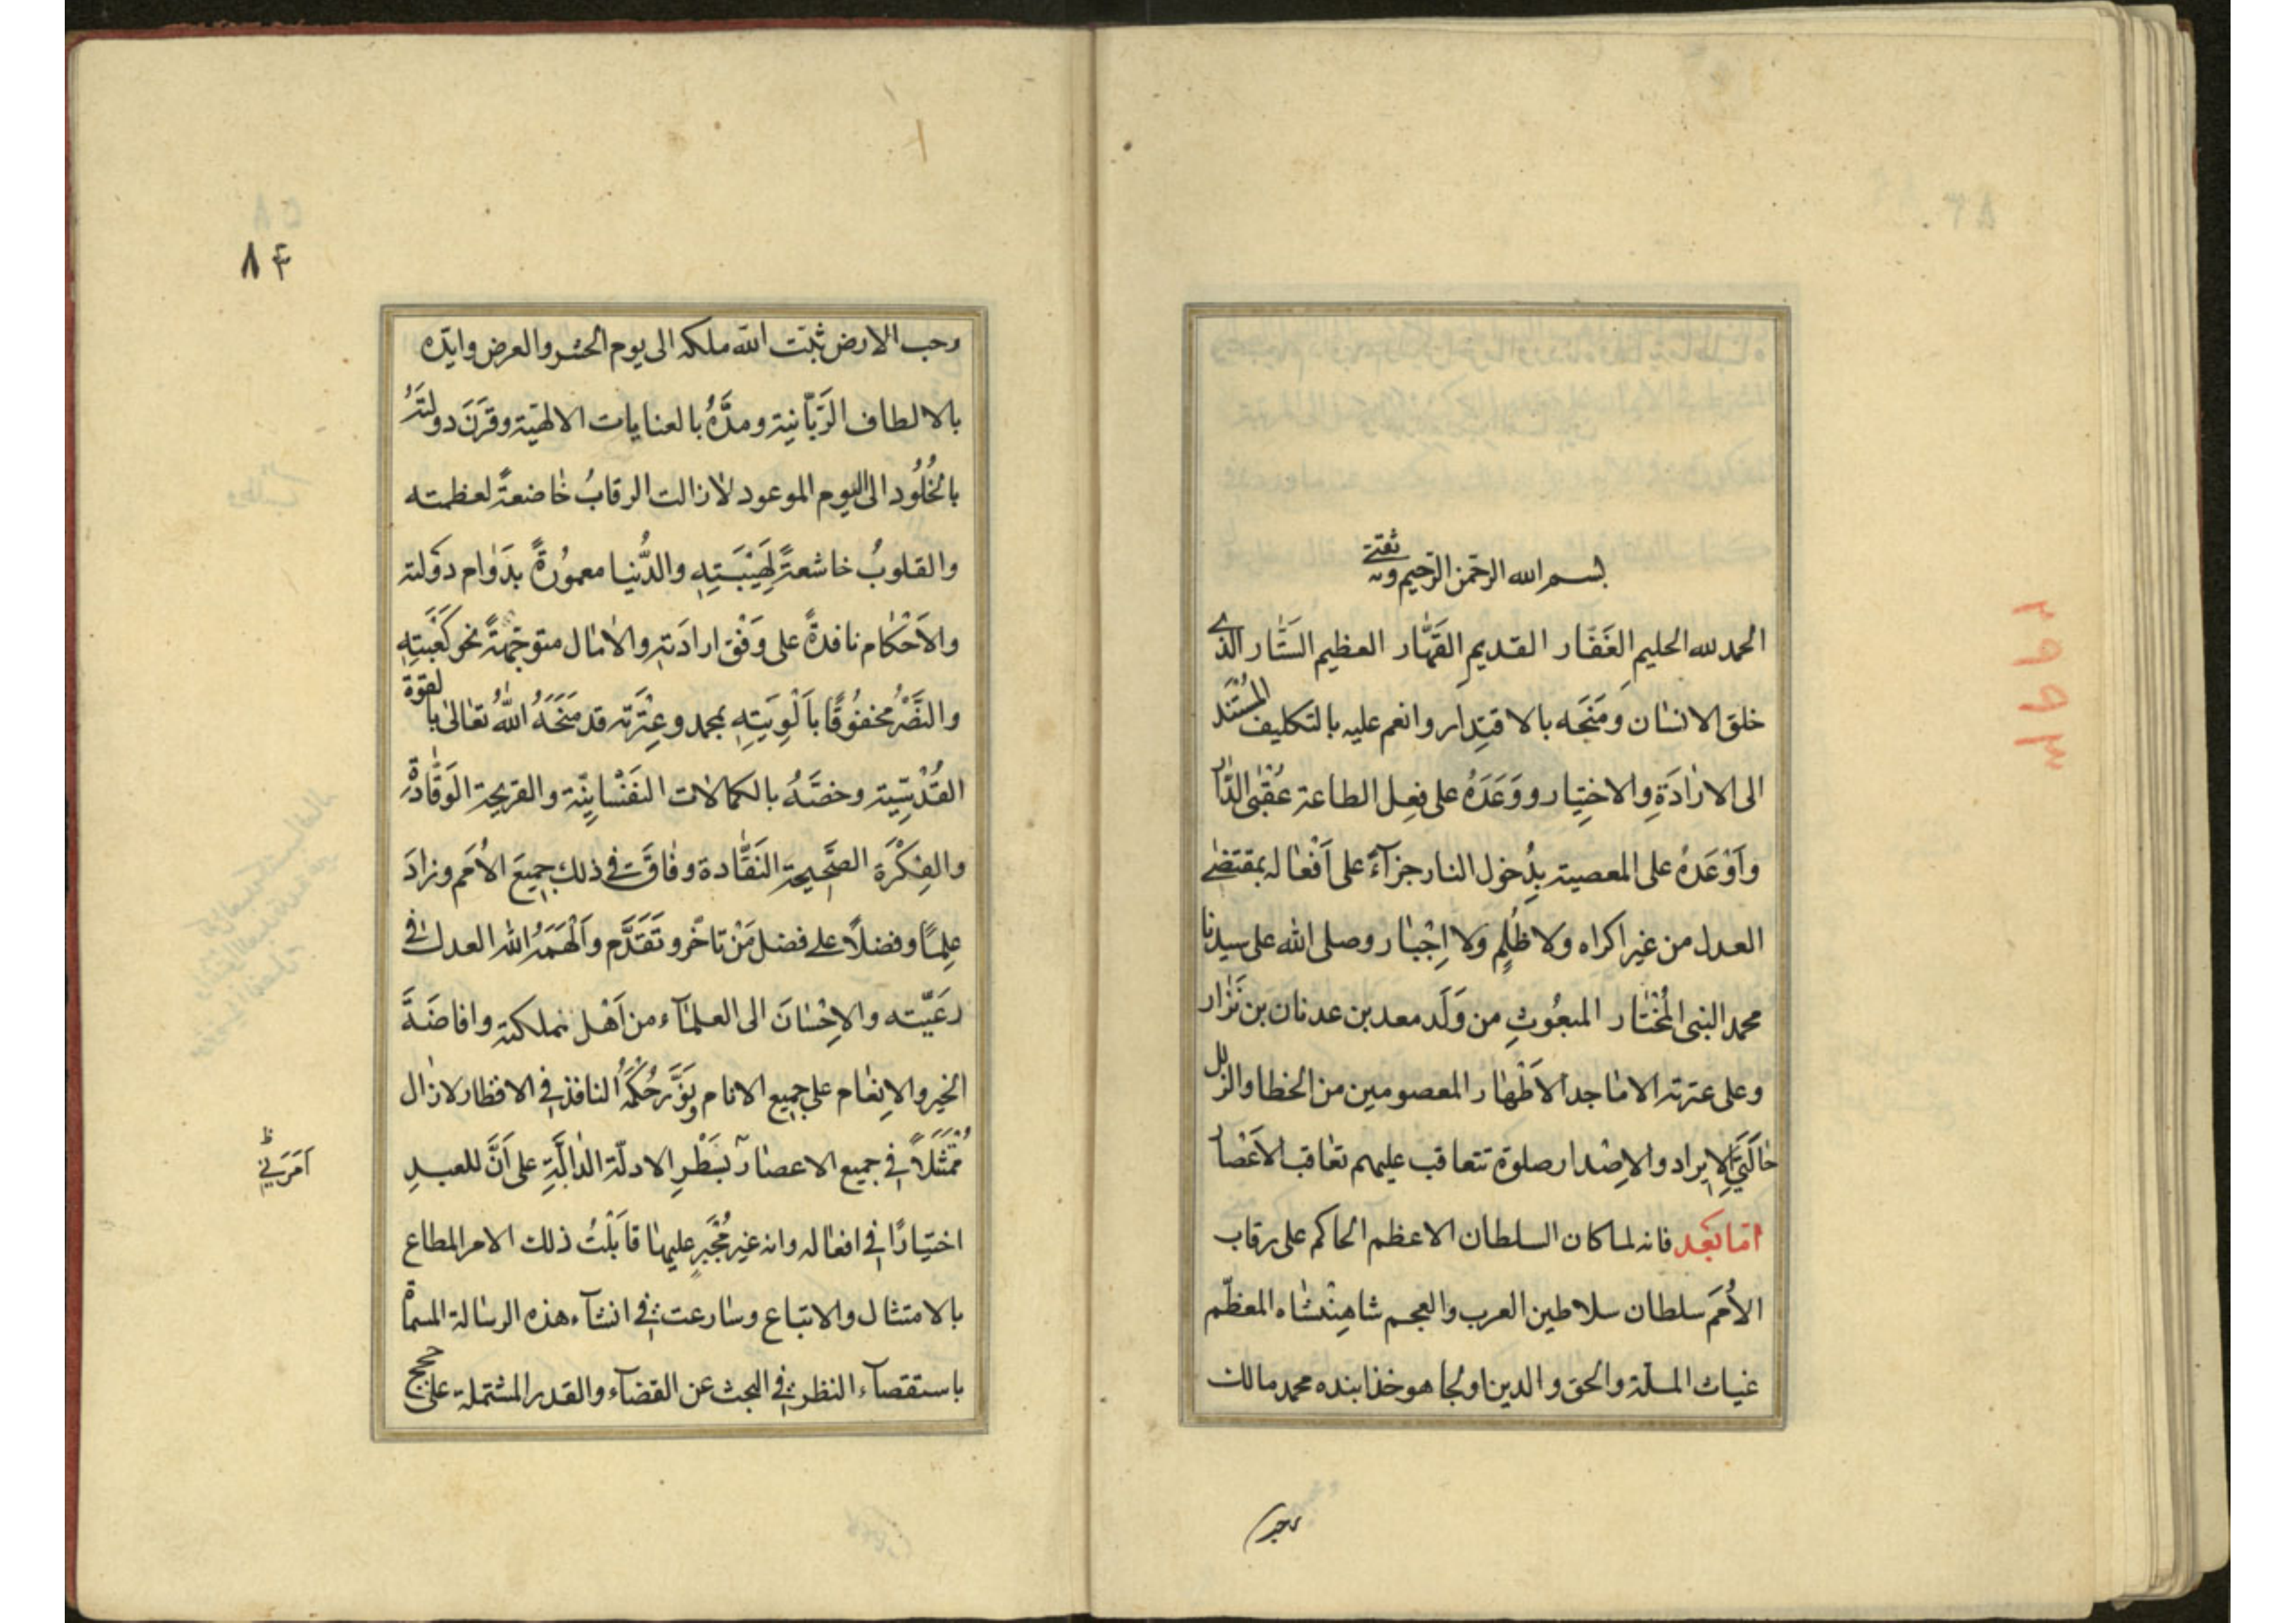 بسم الله الرحمن الرحيم وبه ثقتي
الحمد لله الحليم الغَفّار القديم القَهّار العظيم السَتّار الذي
خلق الانسان ومَنَحَه بالاقتِدار وانعم عليه بالتكليف المُسْتَنَد
الى الارادَةِ والاختِيار ووَعَدَهُ على فِعل الطاعة عُقْبى الدّار
وأَوْعَدَهُ على المعصية بدُخول النار جزآءً على اَفْعاله بمقتضى
العدل من غير اكراه ولا ظُلمٍ ولا اِجْبار وصلى الله على سيدنا
محمد النبى المُخْتار المبعُوثِ من وَلَد معد بن عدنان بن نَزار
وعلى عترته الاماجد الاَطْهار المعصومين من الخطا والزلل
حالَتَيِ الاِيراد والاِصْدار صلوة تتعاقب عليهم تعاقب الاَعْصار
اما بَعد فانه لما كان السلطان الاعظم الحاكم على رقاب
الأُمَم سلطان سلاطين العرب والعجم شاهِنْشاه المعظّم
غياث الملة والحق والدين اولجايتو خدابنده محمد مالك
رحب
٨٤
وحب الارض ثبّت الله ملكه الى يوم الحشر والعرض وايّده
بالالطاف الرَبّانية ومدَّهُ بالعنايات الالهيّة وقرَنَ دولتَهُ
بالخُلُود الى اليوم الموعود لا زالت الرقابُ خاضعةً لعظمته
والقلوبُ خاشعةً لِهَيْبَتِهِ والدُّنيا معمُورةً بدَوام دَولته
والاَحْكام نافذةً على وَفْق ارادَتِهِ والامال متوجّهةً نحو كَعْبَتِهِ
والنَصْرُ محفُوفًا باَلْوِيَتِهِ بمحمد وعِتْرَته قد مَنَحَهُ اللهُ تعالى بالقوة
القُدْسيّة وخصَّهُ بالكمالات النَفْسانِيّة والقريحة الوَقّادَة
والفِكْرَة الصَّحيحة النَقّادة وفاقَ في ذلك جميعَ الأُمَم وزادَ
عِلمًا وفضلاً على فضل مَنْ تاخّر وتَقَدَّم وأَلْهَمَهُ الله العدل في
رَعيّته والاِحْسانَ الى العلمآء من اَهْل مملكته وافاضَةَ
الخير والاِنعام على جميع الانام ويَؤَثِّر حُكْمُهُ النافذ في الاقطار لا زال
مُمْتَثَلاً في جميع الاعصار بسَطْرِ الادلّة الدالَّةِ على اَنَّ للعبدِ
اَمَرَني
اختيارًا في افعاله وانه غير مُجْبَرٍ عليها قابَلْتُ ذلك الامر المطاع
بالامتثال والاتباع وسارعت في انشآء هذه الرسالة المسماة
باستقصآء النظر في البحث عن القضآء والقدر المشتملة على حجج